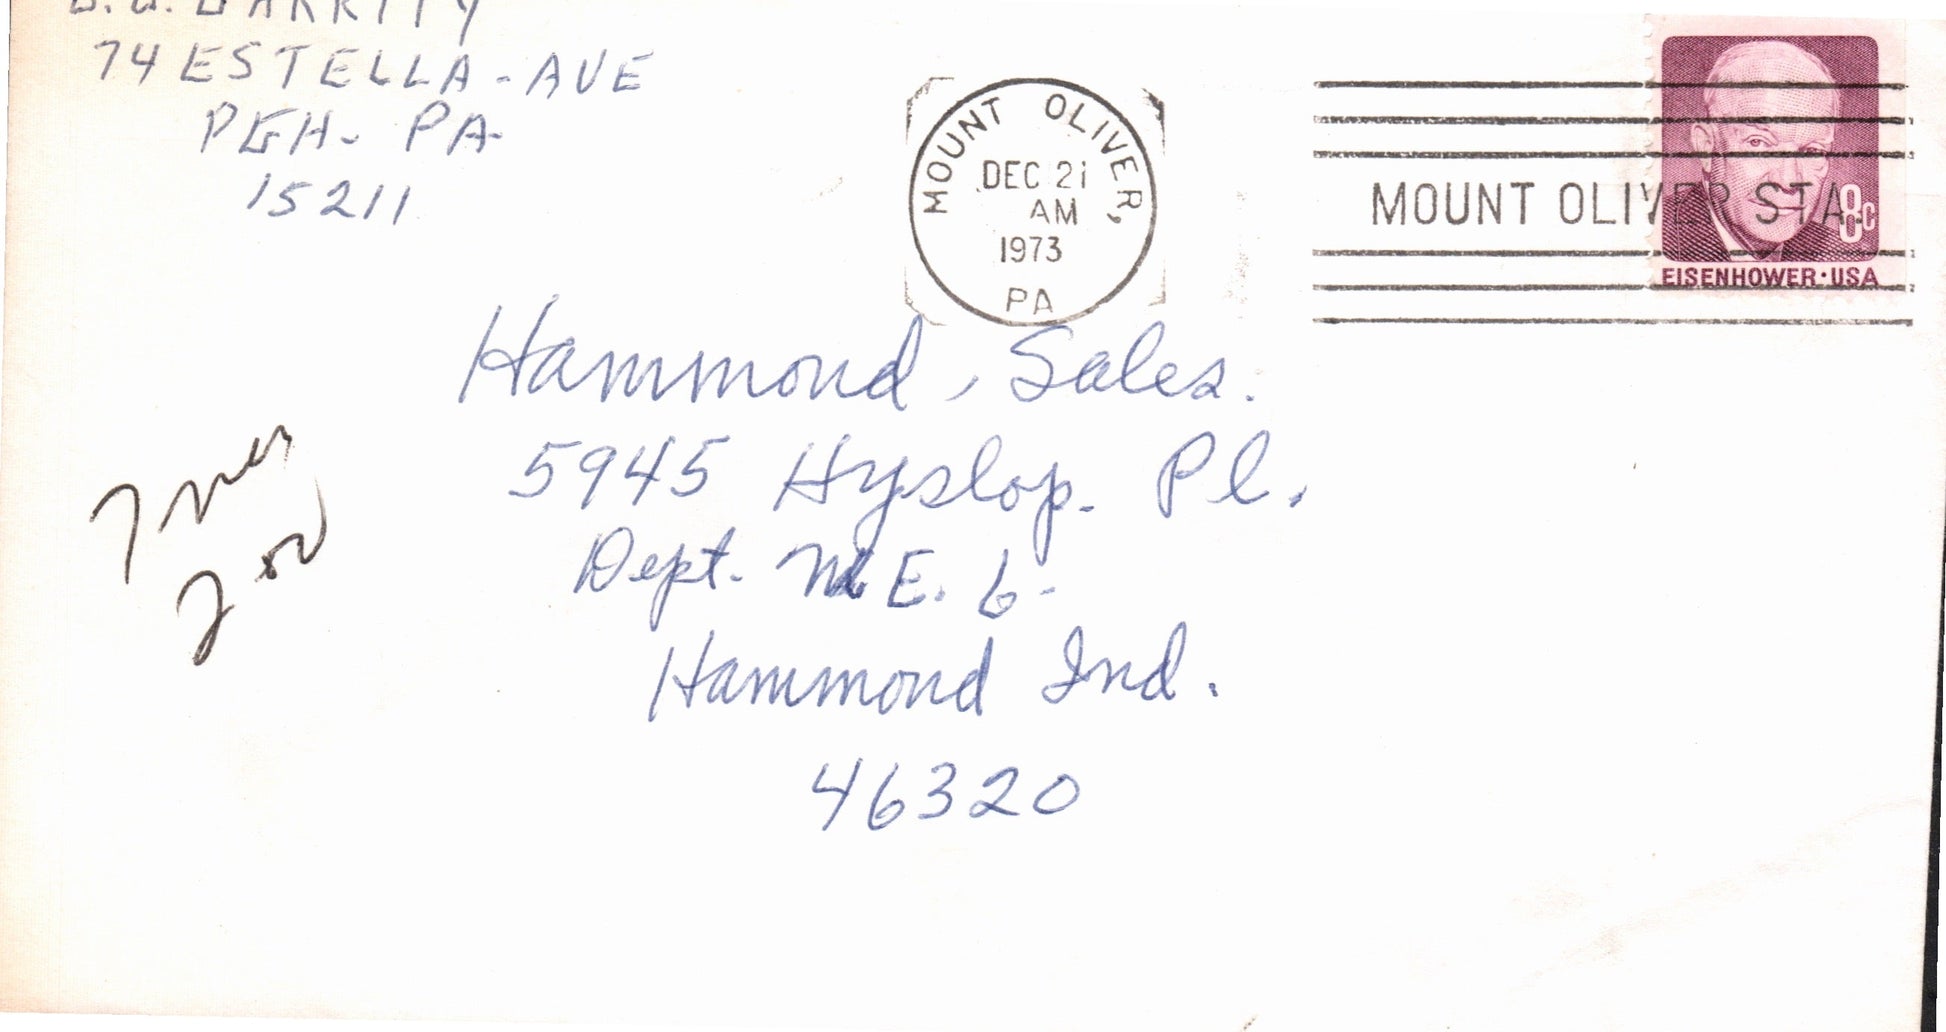 GARRITY
74 ESTELLA-AVE
PGH- PA-
15211
MOUNT OLIVER,
DEC 21
AM
1973
PA
MOUNT OLIVER STA.
8c
EISENHOWER·USA
Hammond, Sales.
5945 Hyslop. Pl.
Dept. M E. 6-
Hammond Ind.
46320